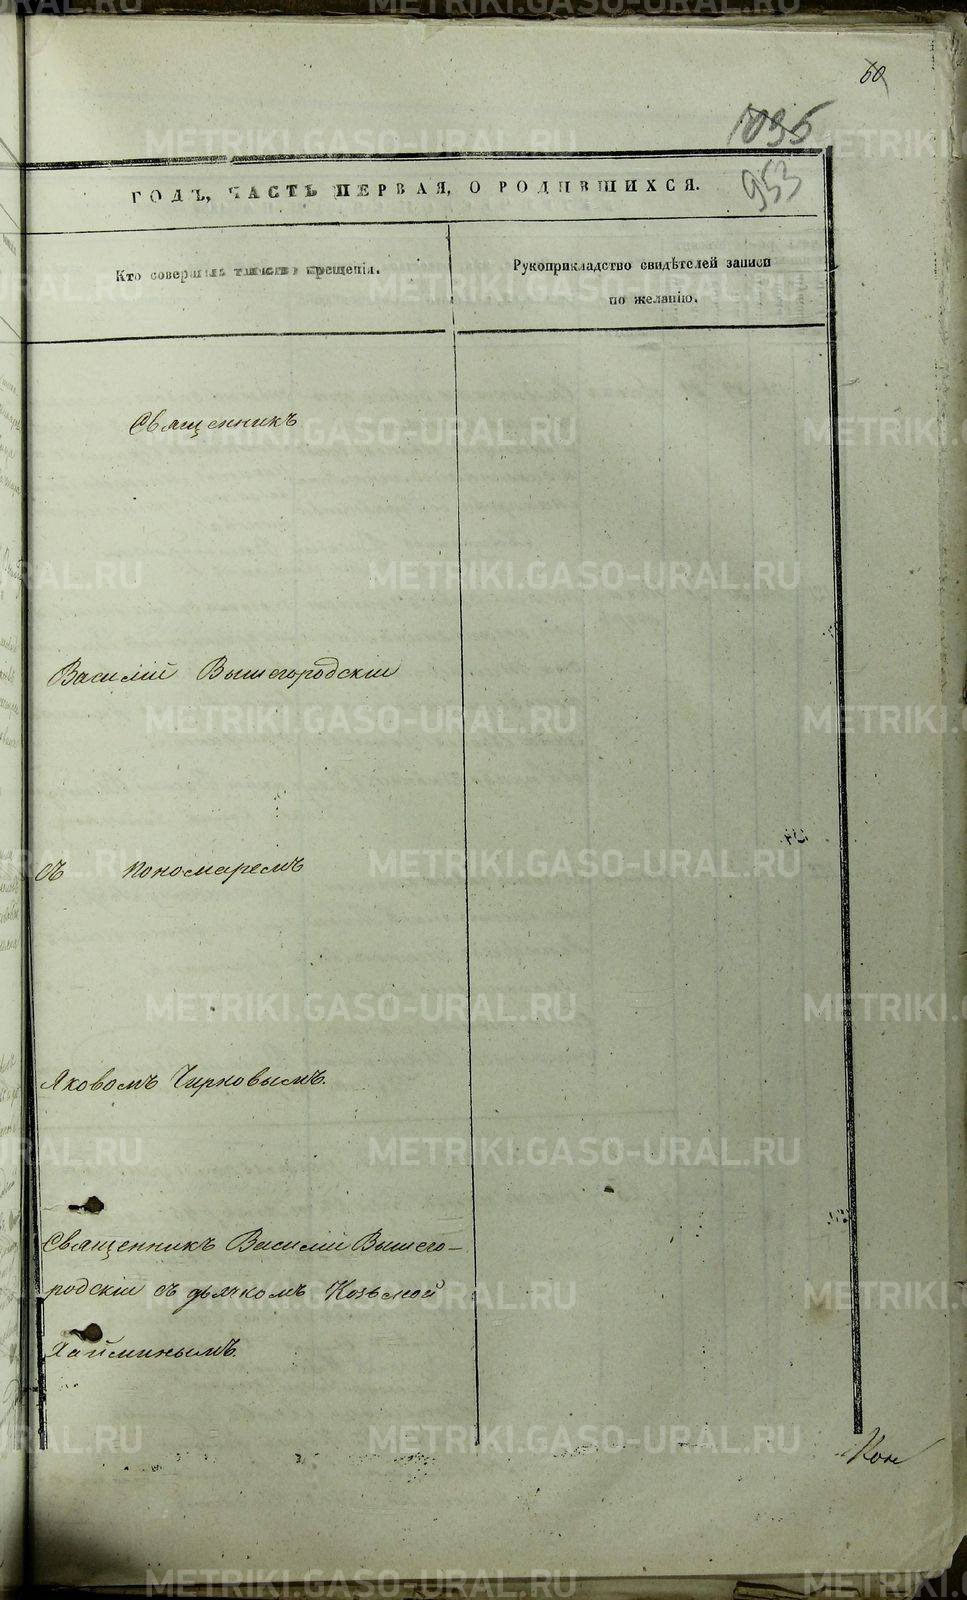 60
1095
953
ГОДЪ, ЧАСТЬ ПЕРВАЯ, О РОДИВШИХСЯ.
Кто совершалъ таинство крещенія.
Рукоприкладство свидѣтелей записи
по желанію.
Священникъ
Василій Вышегородскій
съ пономаремъ
Яковомъ Чирковымъ.
Священникъ Василій Вышего-
родскій съ дьячкомъ Козьмой
Хайминымъ.
METRIKI.GASO-URAL.RU